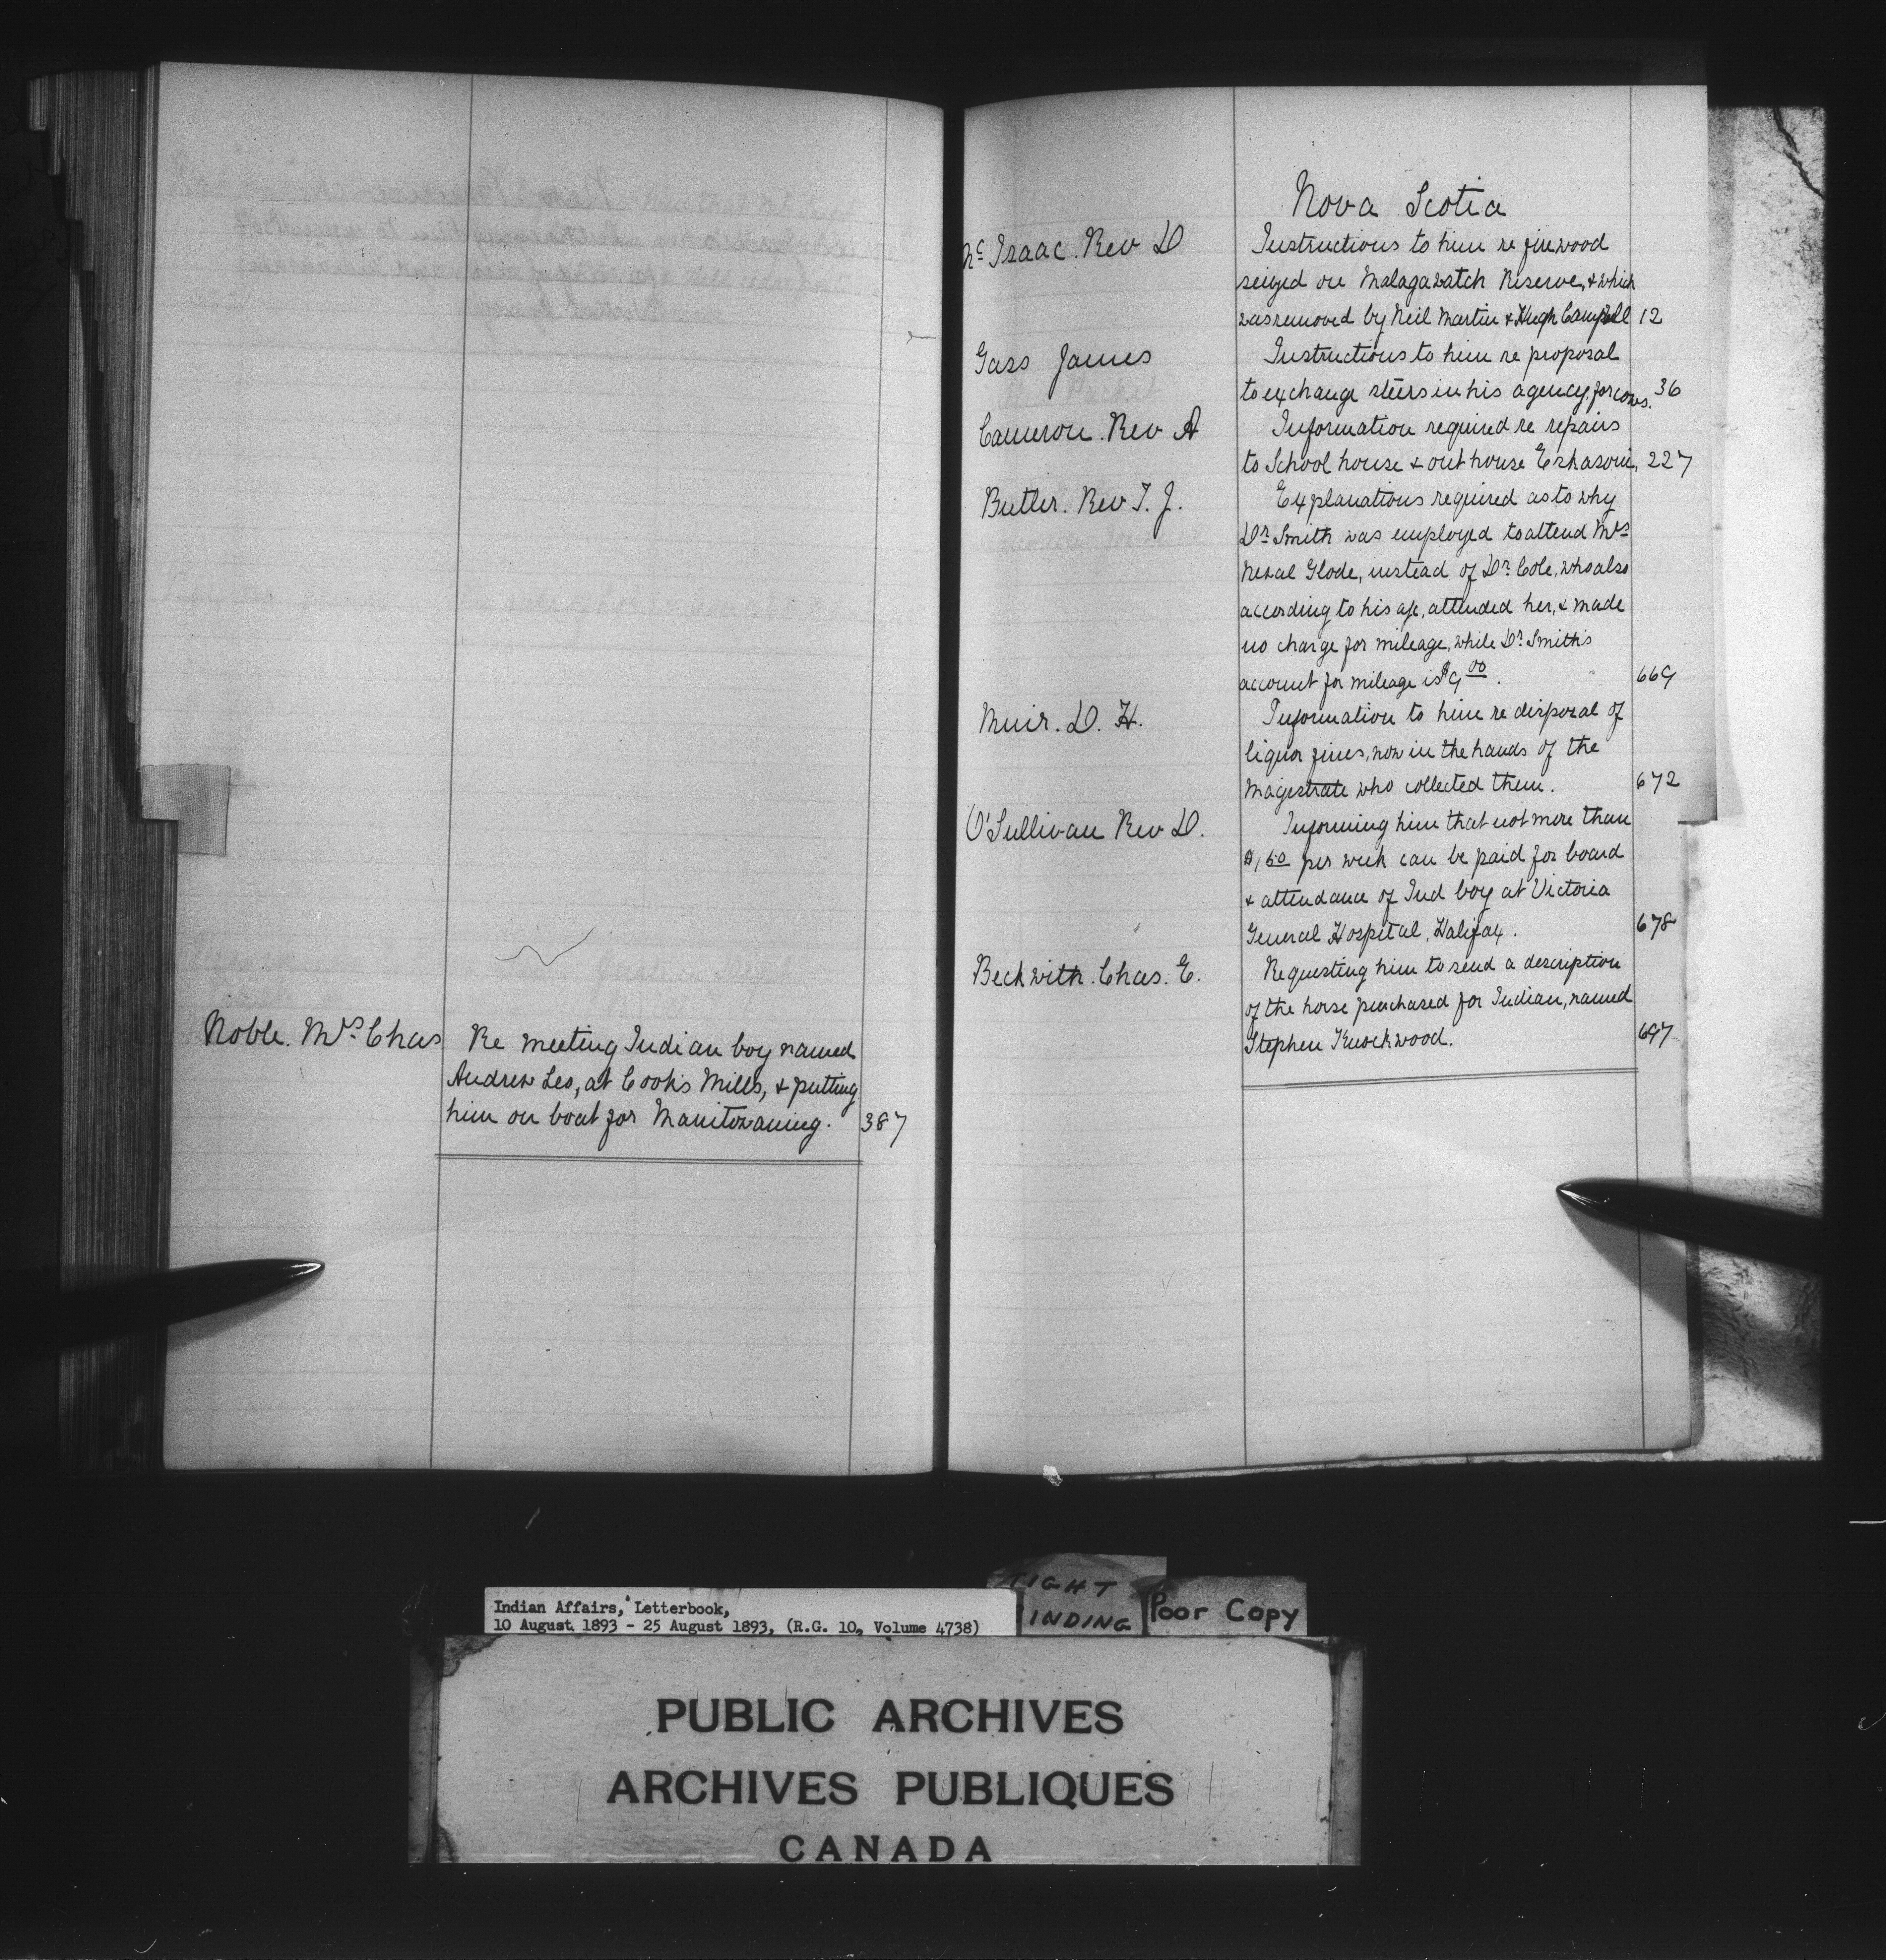 Noble. Mrs Chas
Re meeting Indian boy named
Andrew Leo, at Cook's Mills, & putting
him on boat for Manitowaning. 387
Nova Scotia
McIsaac. Rev D
Instructions to him re firewood
seized on Malagawatch Reserve, & which
was removed by Neil Martin & Hugh Campbell 12
Gass James
Instructions to him re proposal
to exchange steers in his agency for cows. 36
Cameron. Rev A
Information required re repairs
to School house & out house Eskasoni, 227
Butler. Rev T. J.
Explanations required as to why
Dr. Smith was employed to attend Mrs
Newal Glode, instead of Dr. Cole, who also
according to his a/c, attended her, & made
no charge for mileage, while Dr. Smith's
account for mileage is $9 00. 669
Muir. D. H.
Information to him re disposal of
liquor fines, now in the hands of the
Magistrate who collected them. 672
O'Sullivan Rev D.
Informing him that not more than
$1 50 per week can be paid for board
& attendance of Ind boy at Victoria
General Hospital, Halifax. 678
Beckwith. Chas. E.
Requesting him to send a description
of the horse purchased for Indian, named
Stephen Knockwood. 697
Indian Affairs, Letterbook,
10 August 1893 - 25 August 1893, (R.G. 10, Volume 4738)
TIGHT
BINDING
Poor Copy
PUBLIC ARCHIVES
ARCHIVES PUBLIQUES
CANADA